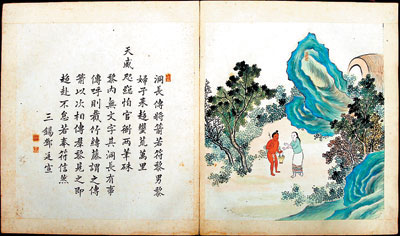 洞長傳將箭若符黎男黎
婦子來趨蠻荒萬里
天威咫怕官衙兩筆硃
黎內無文字其洞長有事
傳呼則截竹縛藤謂之傳
箭以次相傳羣黎見之即
趨赴不怠若奉符信然
三錫鄧廷宣